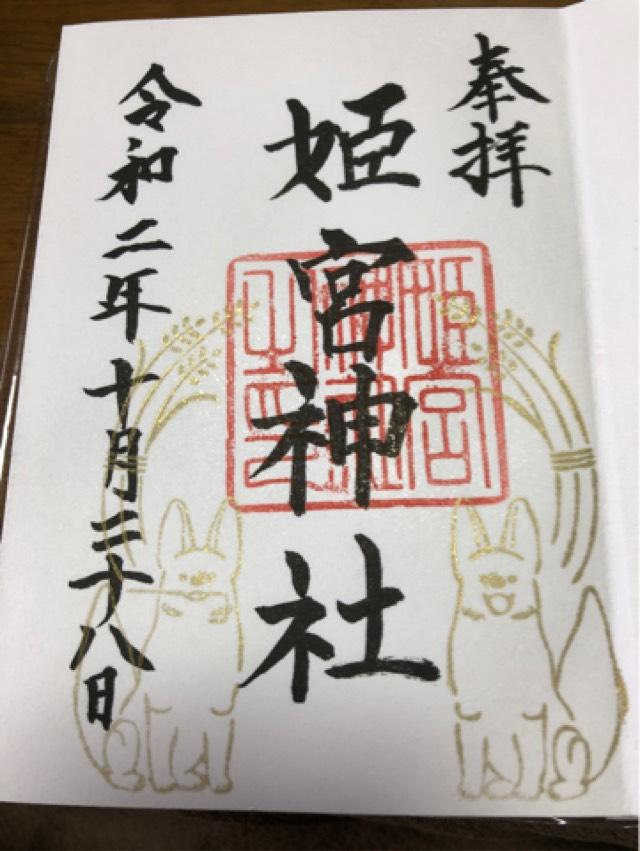 奉拝
姫宮神社
姫宮神社之印
令和二年十月二十八日